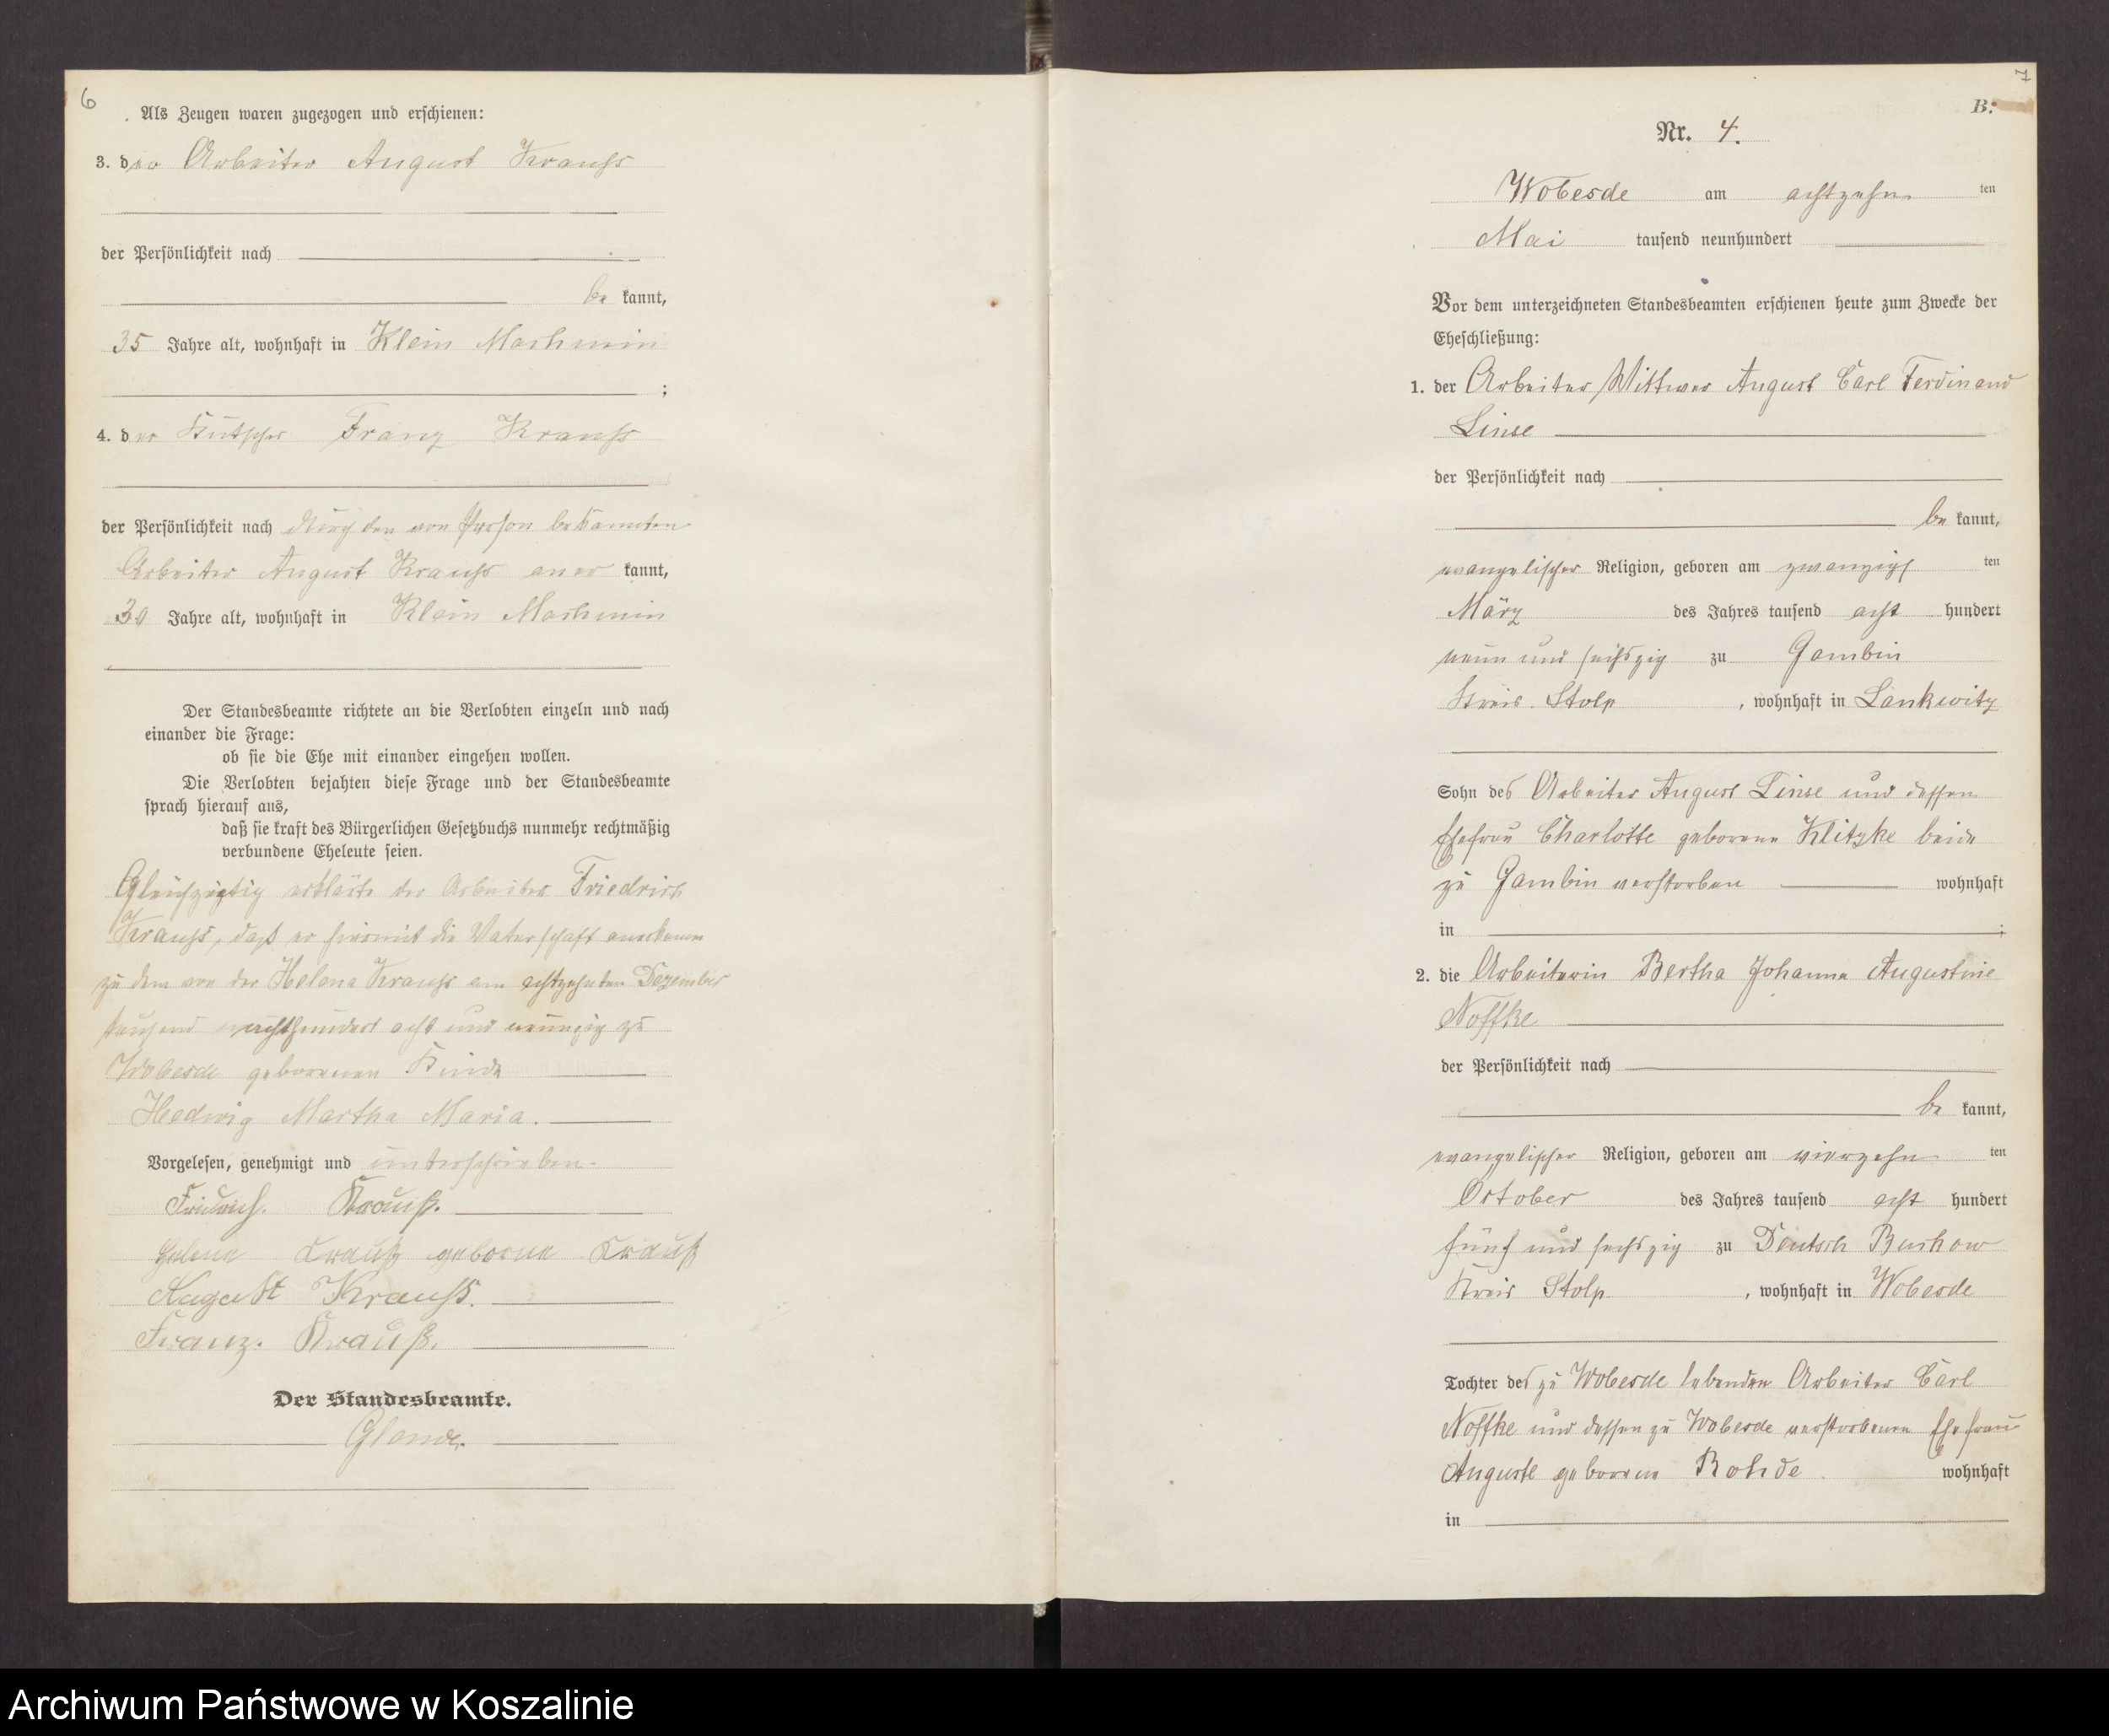 6
Als Zeugen waren zugezogen und erschienen:
3. der Arbeiter August Krauss
der Persönlichkeit nach
be kannt,
35 Jahre alt, wohnhaft in Klein Machmin
;
4. der Kutscher Franz Krauss
der Persönlichkeit nach durch den von Person bekannten
Arbeiter August Krauss aner kannt,
Jahre alt, wohnhaft in Klein Machmin
Der Standesbeamte richtete an die Verlobten einzeln und nach
einander die Frage:
ob sie die Ehe mit einander eingehen wollen.
Die Verlobten bejahten diese Frage und der Standesbeamte
sprach hierauf aus,
daß sie kraft des Bürgerlichen Gesetzbuchs nunmehr rechtmäßig
verbundene Eheleute seien.
Gleichzeitig erklärte der Arbeiter Friedrich
Krauss, daß er hiermit die Vaterschaft anerkenne
zu dem von der Helena Krauss am achtzehnten Dezember
tausend achthundert acht und neunzig zu
Wobesde geborenen Kinde
Hedwig Martha Maria.
Vorgelesen, genehmigt und unterschrieben.
Friedrich Krauß.
Helene Krauß geborne Krauß
August Krauss.
Franz. Krauß.
Der Standesbeamte.
7
B.
Nr. 4.
Wobesde am achtzehn ten
Mai tausend neunhundert
Vor dem unterzeichneten Standesbeamten erschienen heute zum Zwecke der
Eheschließung:
1. der Arbeiter Wittwer August Carl Ferdinand
Linse
der Persönlichkeit nach
be kannt,
evangelischer Religion, geboren am zwanzigs ten
März des Jahres tausend acht hundert
neun und sechszig zu Gambin
Kreis Stolp, wohnhaft in Lankwitz
Sohn des Arbeiter August Linse und dessen
Ehefrau Charlotte geborene Klitzke beide
zu Gambin verstorben wohnhaft
in ;
2. die Arbeiterin Bertha Johanna Augustine
Noffke
der Persönlichkeit nach
be kannt,
evangelischer Religion, geboren am vierzehn ten
October des Jahres tausend acht hundert
fünf und sechszig zu Deutsch Buckow
Kreis Stolp, wohnhaft in Wobesde
Tochter des zu Wobesde lebenden Arbeiter Carl
Noffke und dessen zu Wobesde verstorbenen Ehefrau
Auguste geborene Rohde wohnhaft
in
Archiwum Państwowe w Koszalinie